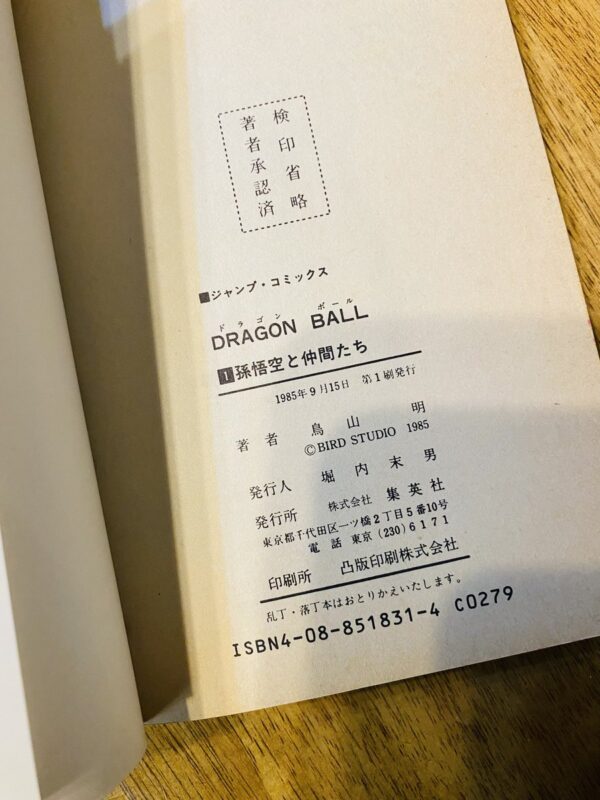 検印省略
著者承認済
■ジャンプ・コミックス
ドラゴン ボール
DRAGON BALL
1孫悟空と仲間たち
1985年9月15日 第1刷発行
著者 鳥山明
©BIRD STUDIO 1985
発行人 堀内末男
発行所 株式会社 集英社
東京都千代田区一ツ橋2丁目5番10号
電話 東京 (230) 6171
印刷所 凸版印刷株式会社
乱丁・落丁本はおとりかえいたします。
ISBN4-08-851831-4 C0279